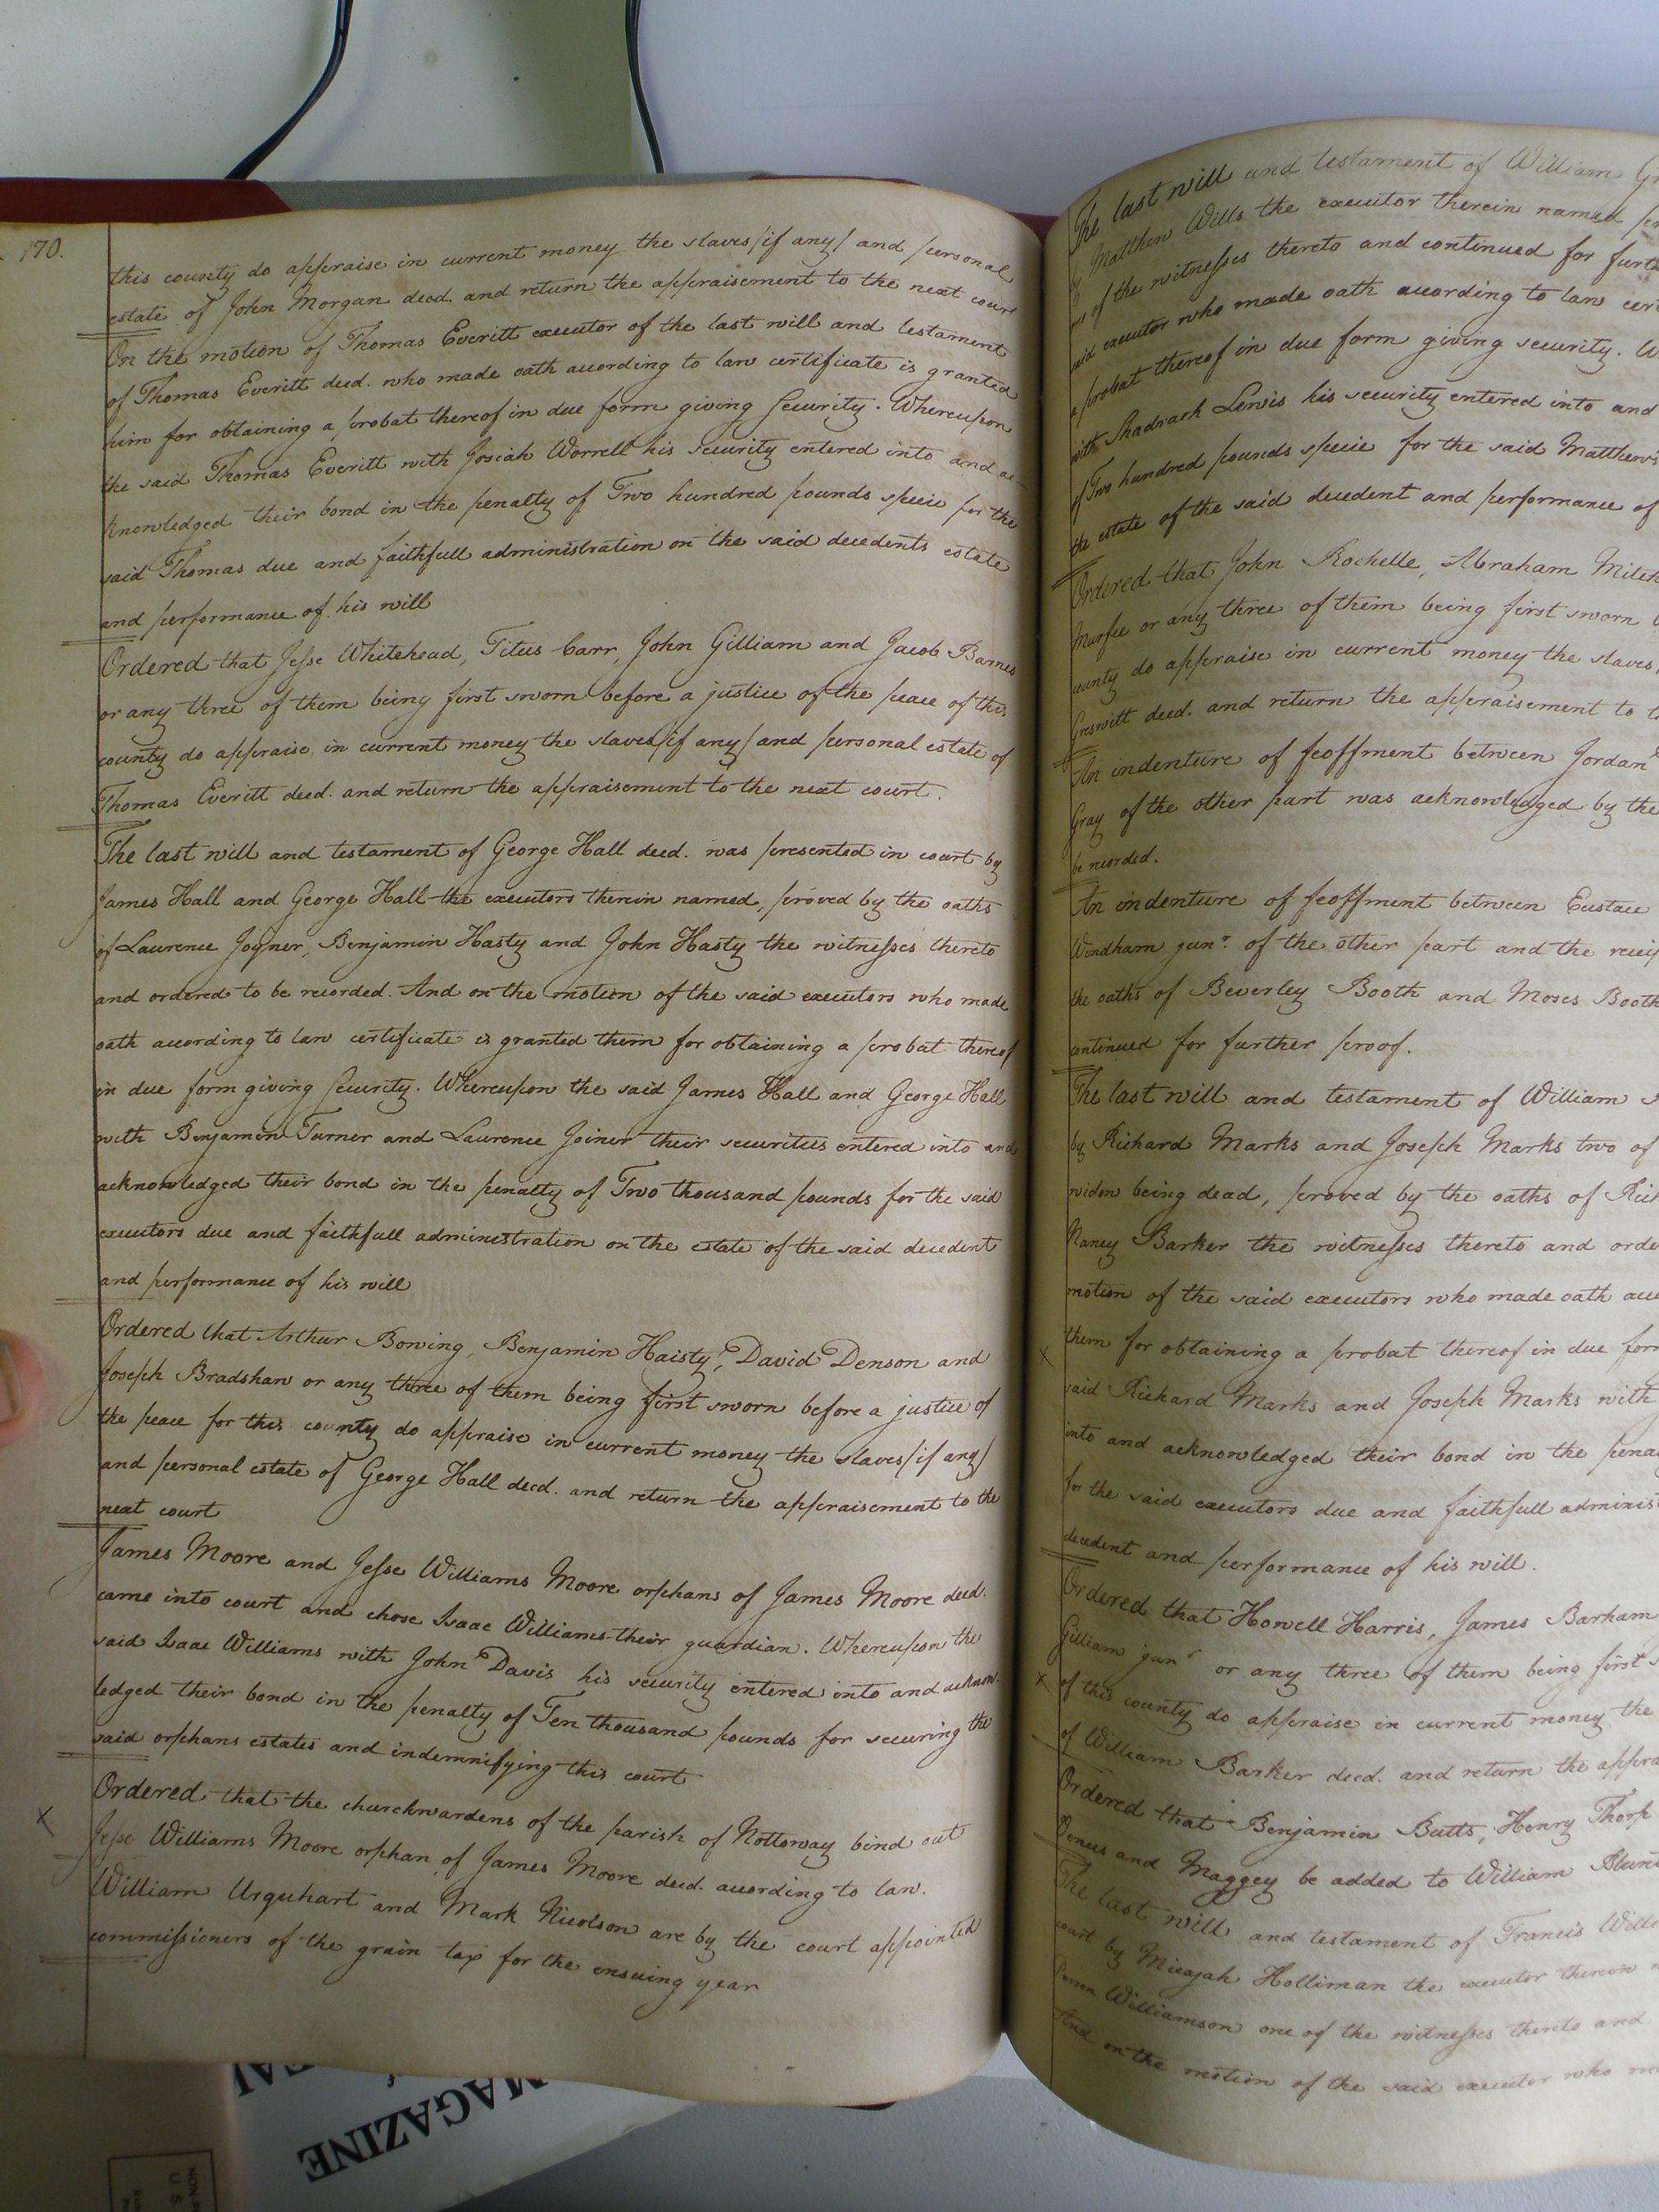 170.
this county do appraise in current money the slaves/if any/ and personal
estate of John Morgan decd. and return the appraisement to the next court
On the motion of Thomas Everitt executor of the last will and testament
of Thomas Everitt decd. who made oath according to law certificate is granted
him for obtaining a probat thereof in due form giving security. Whereupon
the said Thomas Everitt with Josiah Worrell his security entered into and ac-
knowledged their bond in the penalty of Two hundred pounds specie for the
said Thomas due and faithfull administration on the said decedents estate
and performance of his will
Ordered that Jesse Whitehead, Titus Carr, John Gilliam and Jacob Barnes
or any three of them being first sworn before a justice of the peace of this
county do appraise in current money the slaves/if any/ and personal estate of
Thomas Everitt decd. and return the appraisement to the next court.
The last will and testament of George Hall decd. was presented in court by
James Hall and George Hall the executors therein named, proved by the oaths
of Laurence Joyner, Benjamin Hasty and John Hasty the witnesses thereto
and ordered to be recorded. And on the motion of the said executors who made
oath according to law certificate is granted them for obtaining a probat thereof
in due form giving security. Whereupon the said James Hall and George Hall
with Benjamin Turner and Laurence Joiner their securities entered into and
acknowledged their bond in the penalty of Two thousand pounds for the said
executors due and faithfull administration on the estate of the said decedent
and performance of his will
Ordered that Arthur Bowing, Benjamin Haisty, David Denson and
Joseph Bradshaw or any three of them being first sworn before a justice of
the peace for this county do appraise in current money the slaves/if any/
and personal estate of George Hall decd. and return the appraisement to the
next court
James Moore and Jesse Williams Moore orphans of James Moore decd.
came into court and chose Isaac Williams their guardian. Whereupon the
said Isaac Williams with John Davis his security entered into and acknow-
ledged their bond in the penalty of Ten thousand pounds for securing the
said orphans estates and indemnifying this court
Ordered that the churchwardens of the parish of Nottoway bind out
Jesse Williams Moore orphan of James Moore decd. according to law.
William Urquhart and Mark Nicolson are by the court appointed
commissioners of the grain tax for the ensuing year
The last will and testament of William
by Matthew Wills the executor therein named
of the witnesses thereto and continued for
said executor who made oath according to law
a probat thereof in due form giving security.
with Shadrach Lewis his security entered into and
of Two hundred pounds specie for the said Matthew's
the estate of the said decedent and performance of
Ordered that John Rochelle, Abraham
Murfee or any three of them being first sworn
county do appraise in current money the slaves
Greswitt decd. and return the appraisement to
An indenture of feoffment between Jordan
Gray of the other part was acknowledged by the
be recorded.
An indenture of feoffment between Eustace
Windham junr. of the other part and the
the oaths of Beverley Booth and Moses Booth
continued for further proof.
The last will and testament of William
by Richard Marks and Joseph Marks two of
widow being dead, proved by the oaths of
Nancy Barker the witnesses thereto and
motion of the said executors who made oath
them for obtaining a probat thereof in due
said Richard Marks and Joseph Marks with
into and acknowledged their bond in the
for the said executors due and faithfull
decedent and performance of his will.
Ordered that Howell Harris, James Barham
Gilliam junr or any three of them being first
of this county do appraise in current money the
of William Barker decd. and return the
Ordered that Benjamin Butts, Henry Thorp
and Maggey be added to William
The last will and testament of Francis
court by Micajah Holliman the executor therein
Williamson one of the witnesses thereto and
And on the motion of the said executor who
MAGAZINE